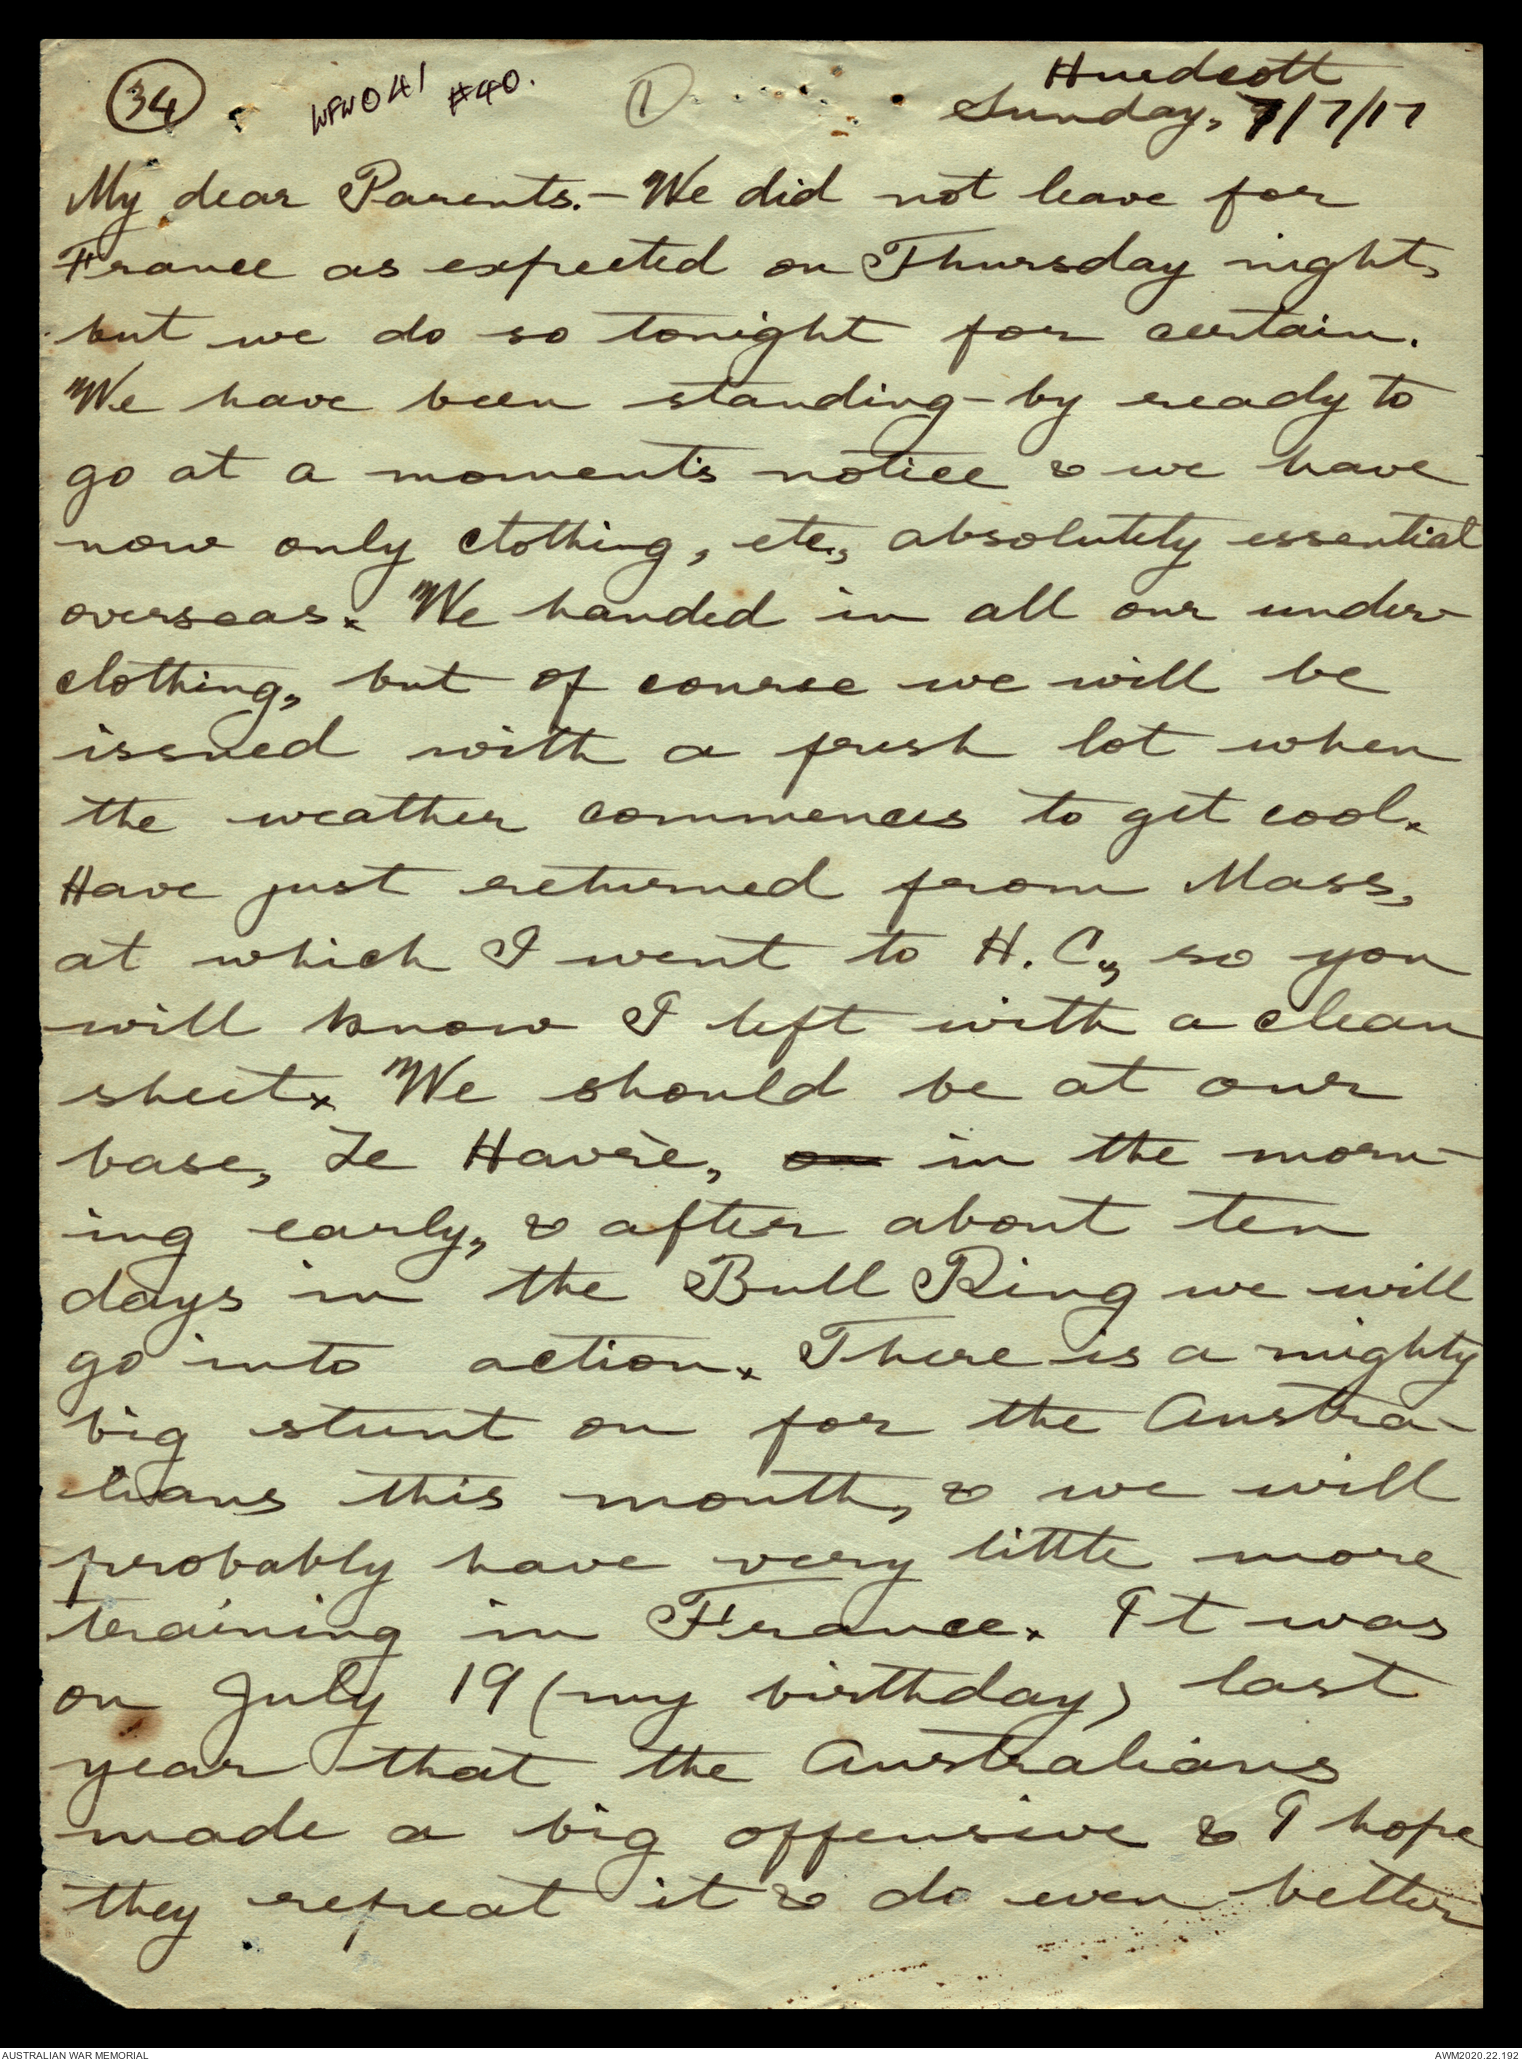 34
WFW041 #40.
1
Hurdcott
Sunday, /7/17
My dear Parents.- We did not leave for
France as expected on Thursday night,
but we do so tonight for certain.
We have been standing-by ready to
go at a moment's notice & we have
now only clothing, etc., absolutely essential
overseas. We handed in all our under-
clothing, but of course we will be
issued with a fresh lot when
the weather commences to get cool.
Have just returned from Mass,
at which I went to H. C., so you
will know I left with a clean
sheet. We should be at our
base, Le Havre, in the morn-
ing early, & after about ten
days in the Bull Ring we will
go into action. There is a mighty
big stunt on for the Austra-
lians this month, & we will
probably have very little more
training in France. It was
on July 19 (my birthday) last
year that the Australians
made a big offensive & I hope
they repeat it & do even better
AUSTRALIAN WAR MEMORIAL
AWM2020.22.192